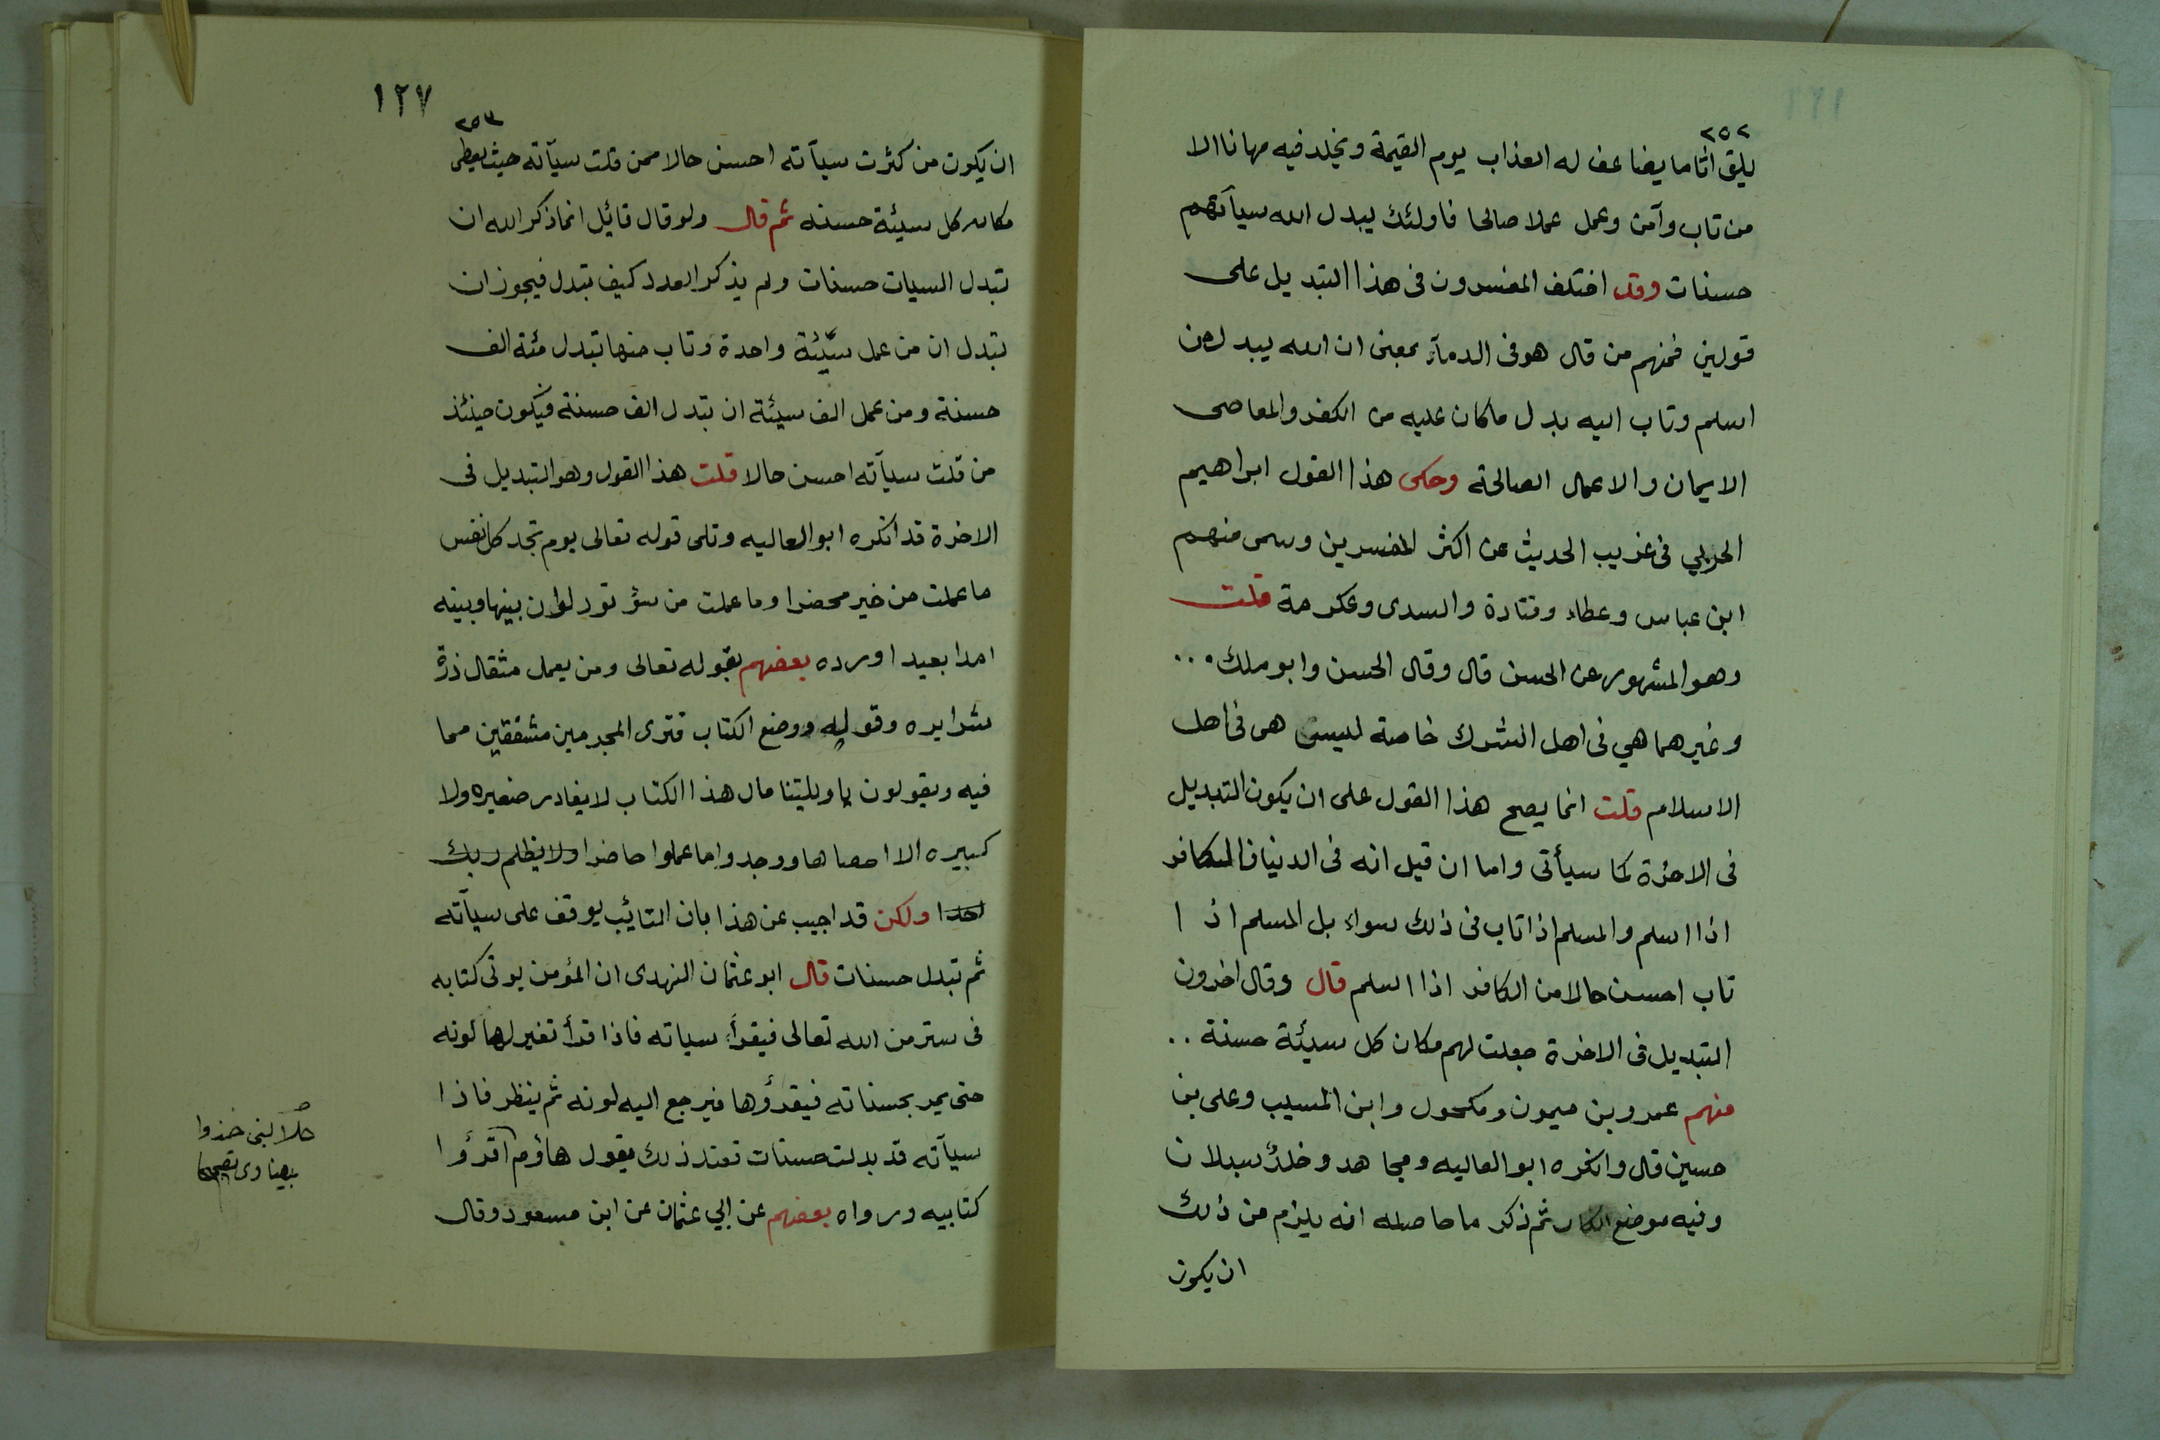 ٢٥٢
يلق اثاما يضاعف له العذاب يوم القيمة ويخلد فيه مهانا الا
من تاب وآمن وعمل عملا صالحا فاولئك يبدل الله سيآتهم
حسنات وقد اختلف المفسرون فى هذا التبديل على
قولين فمنهم من قال هو فى الدنيا بمعنى ان الله يبدل من
اسلم وتاب اليه بدل ماكان عليه من الكفر والمعاصى
الايمان والاعمال الصالحة وحكى هذا القول ابراهيم
الحربي فى غريب الحديث عن اكثر المفسرين وسمى منهم
ابن عباس وعطاء وقتادة والسدى وعكرمة قلت
وهو المشهور عن الحسن قال وقال الحسن وابو ملك ...
وغيرهما هي فى اهل الشرك خاصة ليست هى فى اهل
الاسلام قلت انما يصح هذا القول على ان يكون التبديل
فى الاخرة كما سيأتى واما ان قيل انه فى الدنيا فالكافر
اذا اسلم والمسلم اذا تاب فى ذلك سواء بل المسلم اذا
تاب احسن حالا من الكافر اذا اسلم قال وقال اخرون
التبديل فى الاخرة جعلت لهم مكان كل سيئة حسنة ..
منهم عمرو بن ميمون ومكحول وابن المسيب وعلى بن
حسين قال وانكره ابو العاليه ومجاهد وخلد سبلان
وفيه موضع انكار ثم ذكر ما حاصله انه يلزم من ذلك
ان يكون
١٢٧
٢٥٣
ان يكون من كثرت سيآته احسن حالا ممن قلت سيآته حيث يعطى
مكان كل سيئة حسنه ثم قال ولو قال قائل انما ذكر الله ان
تبدل السيات حسنات ولم يذكر العدد كيف تبدل فيجوز ان
تبدل ان من عمل سيّئة واحدة وتاب منها تبدل مئة الف
حسنة ومن عمل الف سيئة ان تبدل الف حسنة فيكون حينئذ
من قلت سيآته احسن حالا قلت هذا القول وهو التبديل فى
الاخرة قد انكره ابو العاليه وتلى قوله تعالى يوم تجد كل نفس
ما عملت من خير محضرا وما عملت من سؤ تود لو ان بينها وبينه
امدا بعيدا ورده بعضهم بقوله تعالى ومن يعمل مثقال ذرة
شرا يره وقوله ووضع الكتاب فترى المجرمين مشفقين مما
فيه ويقولون ياويلتنا مال هذا الكتاب لا يغادر صغيره ولا
كبيره الا احصاها ووجدوا ما عملوا حاضرا ولا يظلم ربك
احدا ولكن قد اجيب عن هذا بان التائب يوقف على سيآته
ثم تبدل حسنات قال ابو عثمان النهدى ان المؤمن يوتى كتابه
فى ستر من الله تعالى فيقرأ سياته فاذا قرأ تغير لها لونه
حتى يمر بحسناته فيقرؤها فيرجع اليه لونه ثم ينظر فاذا
سيآته قد بدلت حسنات فعند ذلك يقول هاؤم اقرؤا
كتابيه ورواه بعضهم عن ابي عثمان عن ابن مسعود وقال
خذوا